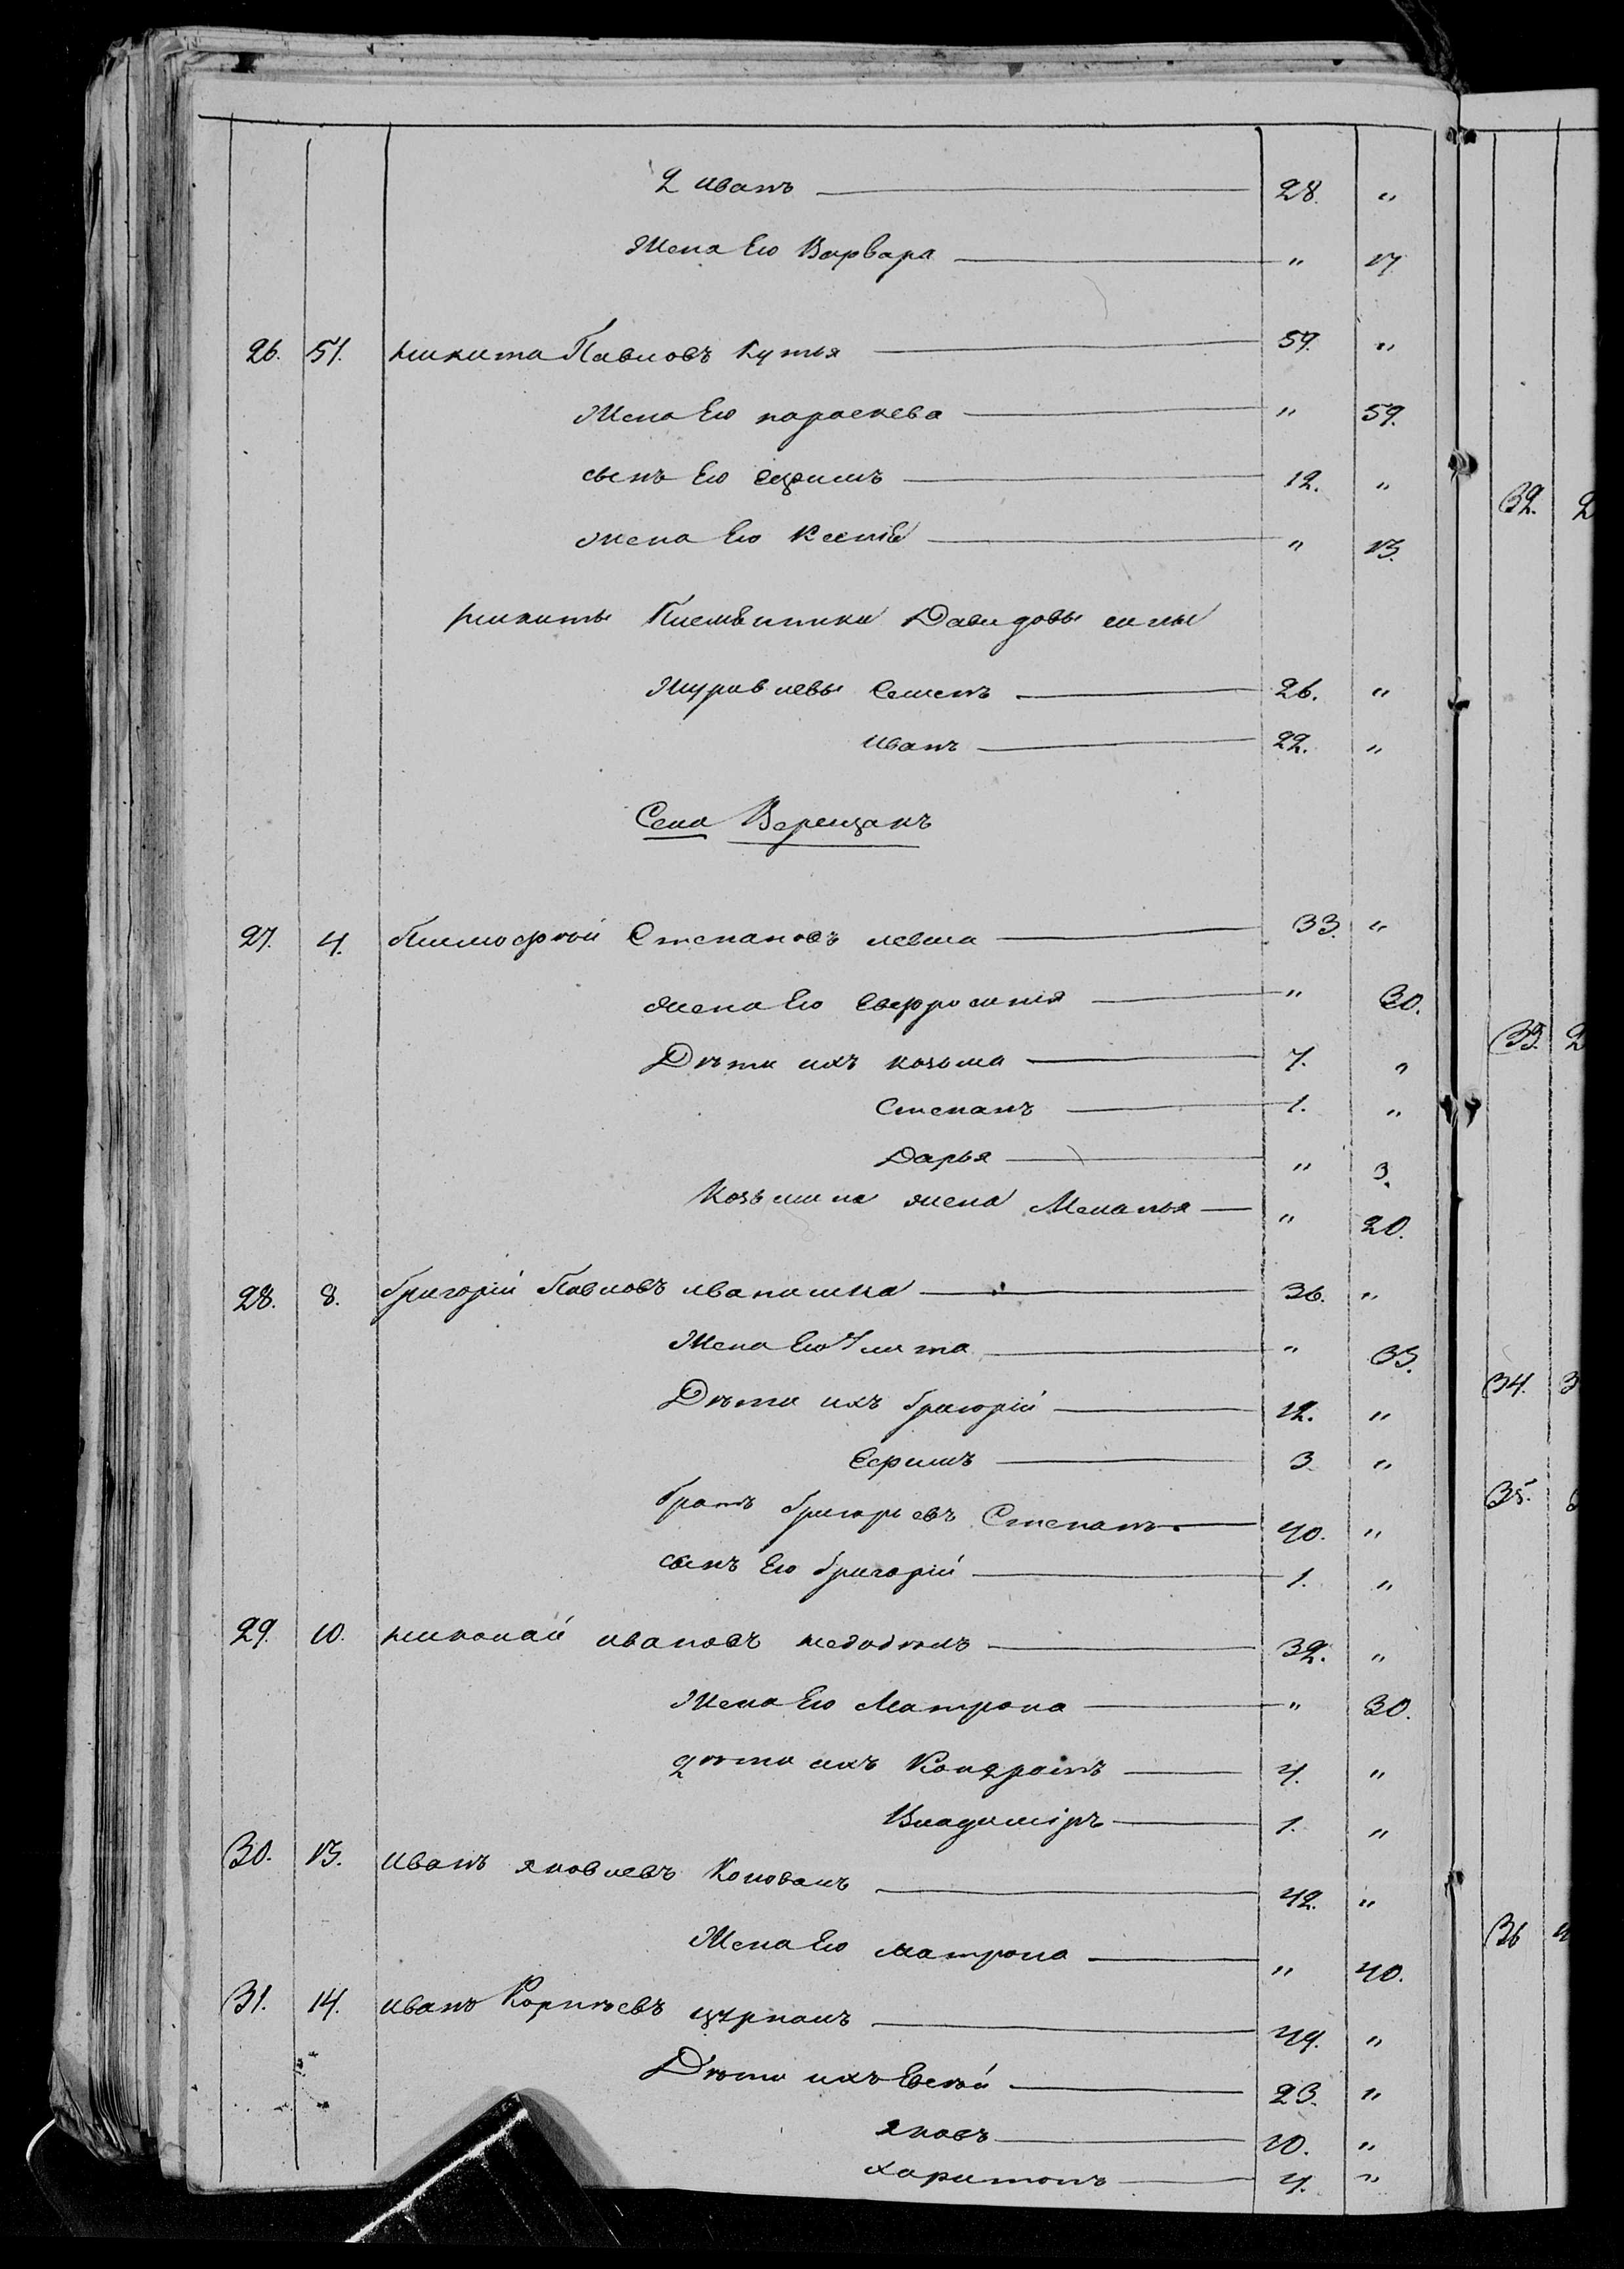 2 Иванъ — 28. „
Жена Его Варвара — „ 17
26. 51. Никита Павловъ Кутья — 59. „
Жена Его параскева — „ 59.
сынъ Его Ефимъ — 12. „
жена Его Ксенія — „ 13.
Никиты Племѣнники Давидовы сыны
Журавлевы Семенъ — 26. „
Иванъ — 22. „
Села Верещакъ
27. 4. Тимофѣй Степановъ левша — 33. „
жена Его Евфросинія — „ 30.
Дѣти ихъ козьма — 7. „
Степанъ — 1. „
Дарья — „ 3.
Козьмина жена Меланья — „ 20.
28. 8. Григорій Павловъ Иванишка — 36. „
Жена Его Улита — „ 35.
Дѣти ихъ Григорій — 12. „
Ефимъ — 3 „
братъ Григорьевъ Степанъ — 40. „
сынъ Его Григорій — 1. „
29. 10. Николай Ивановъ — 32. „
Жена Его Матрона — „ 30.
дѣти ихъ Кондратъ — 4. „
Владиміръ — 1. „
30. 13. Иванъ Яковлевъ Коновалъ — 42. „
Жена Его матрона — „ 40.
31. 14. Иванъ Корнѣевъ — 49. „
Дѣти ихъ Евсѣй — 23. „
Яковъ — 10. „
Харитонъ — 4. „
32. 2
33. 2
34. 3
35.
36